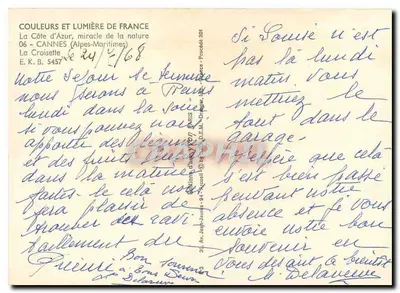 COULEURS ET LUMIÈRE DE FRANCE
La Côte d'Azur, miracle de la nature
06 - CANNES (Alpes-Maritimes)
La Croisette
E. K. B. 5457
le 24/7/68
Notre Séjour se termine
nous serons à
lundi dans la soirée
si vous pouvez nous
apporter des légumes
et des fruits
dans la matinée
faites le celà nous
fera plaisir de
trouver des ravi-
taillement du
Prieuré.
Bon souvenir
à Bons
Delaveuve
Si Louise n'est
pas là lundi
matin. Vous
mettriez le
tout dans le
garage.
J'espère que celà
s'est bien passé
pendant notre
absence et je vous
envoie notre bon
souvenir en
vous disant à bientôt
M. Delaveuve